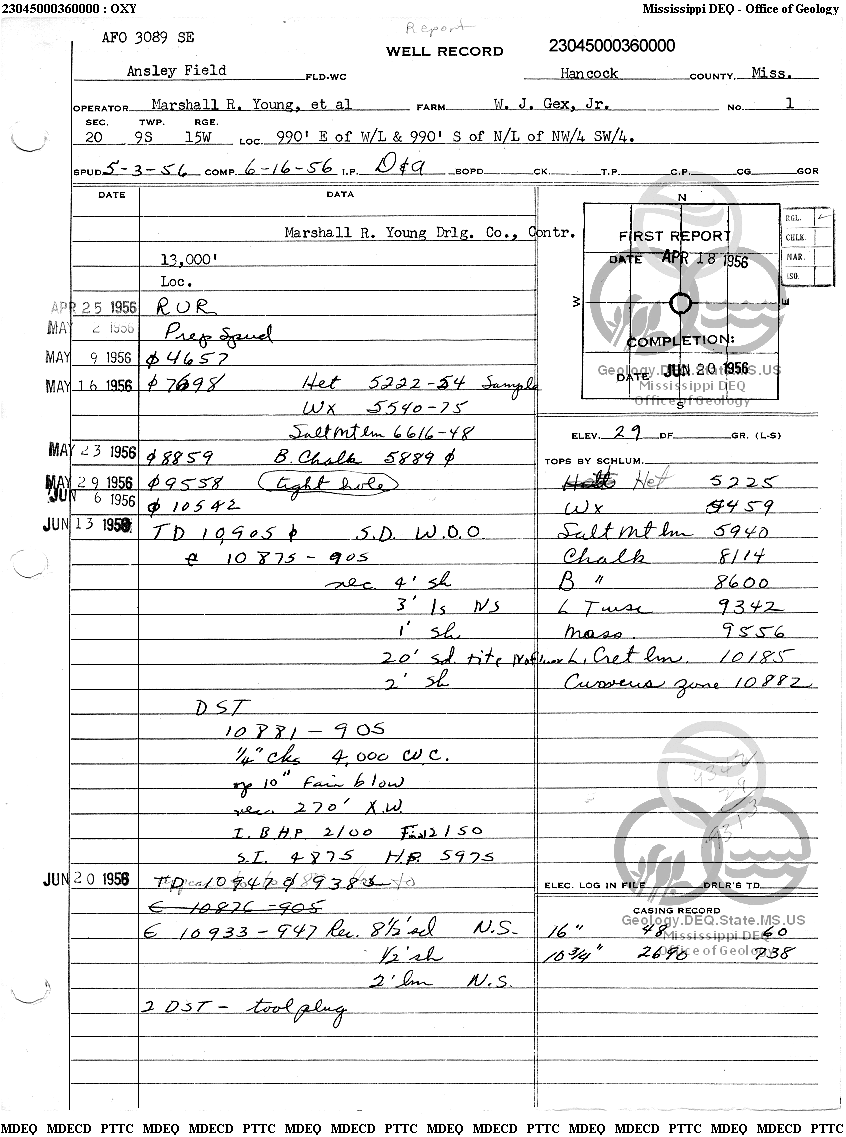 23045000360000 : OXY Mississippi DEQ - Office of Geology
Report
AFO 3089 SE
WELL RECORD 23045000360000
Ansley Field FLD-WC Hancock COUNTY, Miss.
OPERATOR Marshall R. Young, et al FARM W. J. Gex, Jr. NO. 1
SEC. TWP. RGE.
20 9S 15W LOC. 990' E of W/L & 990' S of N/L of NW/4 SW/4.
SPUD 5-3-56 COMP. 6-16-56 I.P. D&A BOPD CK. T.P. C.P. CG GOR
DATE DATA
Marshall R. Young Drlg. Co., Contr.
13,000'
Loc.
APR 25 1956 RUR
MAY 2 1956 Prep Spud
MAY 9 1956 ϕ 4657
MAY 16 1956 ϕ 7698 Het 5222-54 Sample
WX 5540-75
Salt Mt lm 6616-48
MAY 23 1956 ϕ 8859 B. Chalk 5889 ϕ
MAY 29 1956 ϕ 9558 (tight hole)
JUN 6 1956 ϕ 10542
JUN 13 1956 TD 10,905 ϕ S.D. W.O.O
10875-905
rec. 4' sh
3' ls NS
1' sh
20' sd. tite
2' sh
DST
10881-905
1/4" chk 4,000 CWC.
op 10" Fair blow
rec. 270' X.W.
I. BHP 2100 Final 2150
S.I. 4875 H.P. 5975
JUN 20 1956 TD 10947
C 10876-905
C 10933-947 Rec. 8 1/2' sd N.S.
1/2' sh
2' lm N.S.
2 DST - tool plug
N
W
E
S
FIRST REPORT
DATE APR 18 1956
COMPLETION:
DATE JUN 20 1956
RGL.
CHLK.
MAR.
ISO.
Geology.DEQ.State.MS.US
Mississippi DEQ
Office of Geology
ELEV. 29 DF. GR. (L-S)
TOPS BY SCHLUM.
Het 5225
WX 5459
Salt Mt lm 5940
Chalk 8114
B " 8600
L Tusc 9342
Mass. 9556
L. Cret lm. 10185
zone 10882
9342
29
9313
ELEC. LOG IN FILE DRLR'S TD
CASING RECORD
Geology.DEQ.State.MS.US
Mississippi DEQ
Office of Geology
16" 48 60
10 3/4" 2690 738
MDEQ MDECD PTTC MDEQ MDECD PTTC MDEQ MDECD PTTC MDEQ MDECD PTTC MDEQ MDECD PTTC MDEQ MDECD PTTC